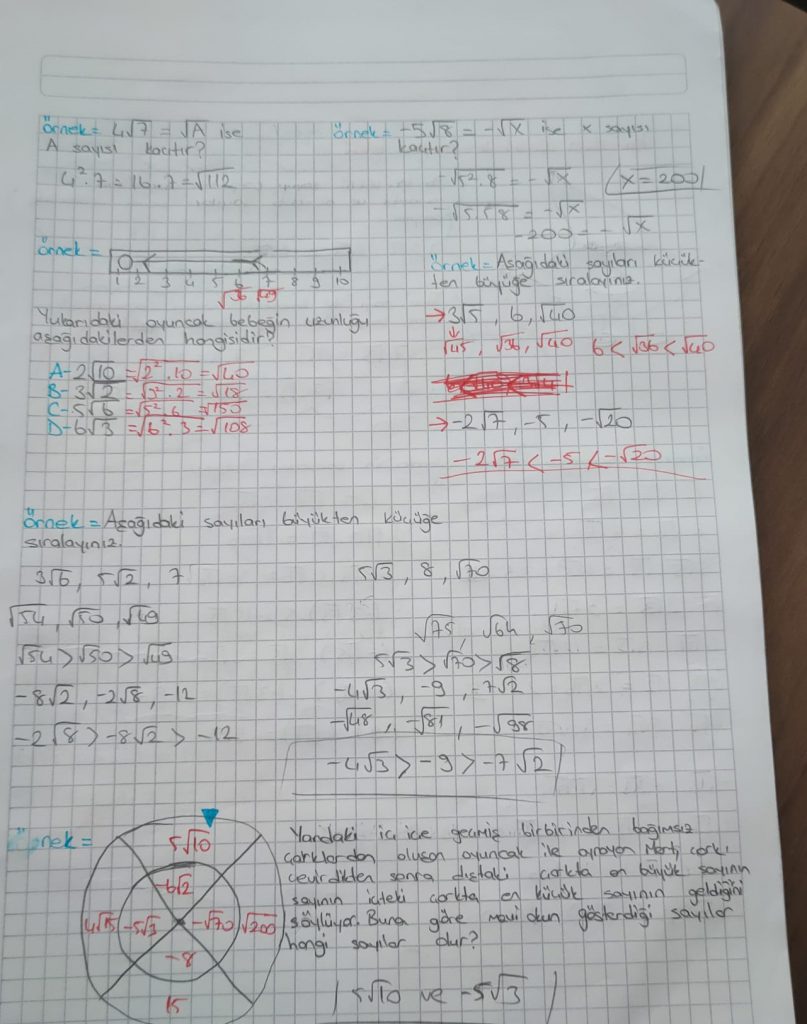 Örnek = 4√7 = √A ise
A sayısı kaçtır?
4².7 = 16.7 = √112
Örnek = -5√8 = -√x ise x sayısı
kaçtır?
-√5².8 = -√x
(x = 200)
-√5.5.8 = -√x
-200 = -√x
Örnek =
1 2 3 4 5 6 7 8 9 10
√36 √49
Yukarıdaki oyuncak bebeğin uzunluğu
aşağıdakilerden hangisidir?
A- 2√10 = √2².10 = √40
B- 3√2 = √3².2 = √18
C- 5√6 = √5².6 = √150
D- 6√3 = √6².3 = √108
Örnek = Aşağıdaki sayıları küçük-
ten büyüğe sıralayınız.
→ 3√5, 6, √40
√45, √36, √40 6 < √36 < √40
→ -2√7, -5, -√20
-2√7 < -5 < -√20
Örnek = Aşağıdaki sayıları büyükten küçüğe
sıralayınız.
3√6, 5√2, 7
√54, √50, √49
√54 > √50 > √49
-8√2, -2√8, -12
-2√8 > -8√2 > -12
5√3, 8, √70
√75, √64, √70
5√3 > √70 > √8
-4√3, -9, -7√2
-√48, -√81, -√98
-4√3 > -9 > -7√2
Örnek =
5√10
-6√2
4√15 -5√3 -√70 √200
-8
15
Yandaki iç içe geçmiş birbirinden bağımsız
çarklardan oluşan oyuncak ile oynayan Mert, çarkı
çevirdikten sonra dıştaki çarkta en büyük sayının
içteki çarkta en küçük sayının geldiğini
söylüyor. Buna göre mavi okun gösterdiği sayılar
hangi sayılar dır?
| 5√10 ve -5√3 |